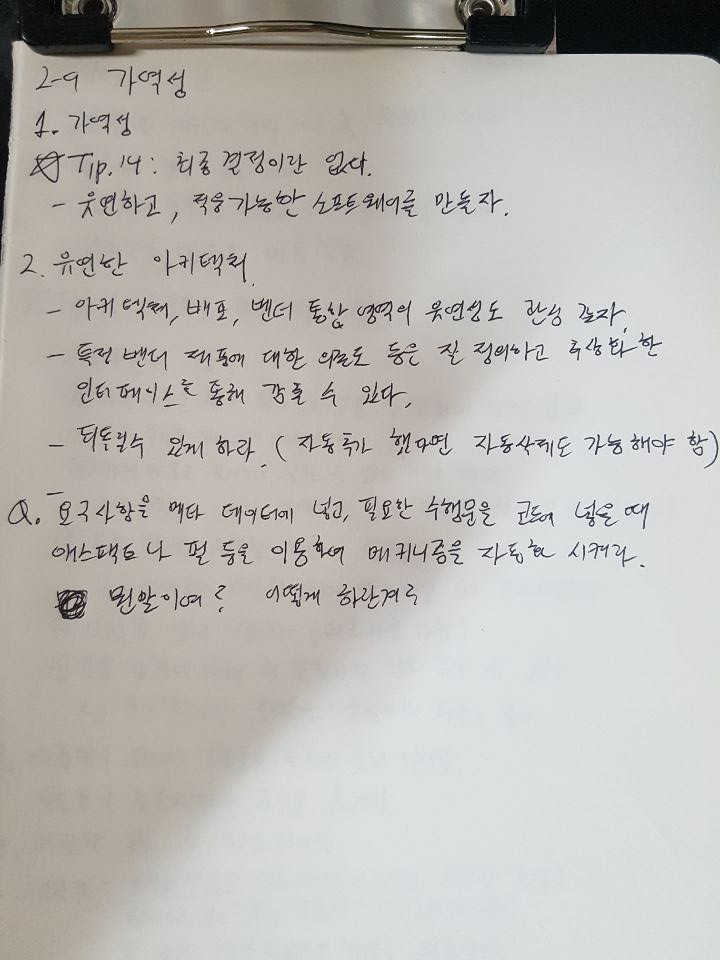 2-9 가역성
1. 가역성
☆ Tip.14: 최종 결정이란 없다.
- 유연하고, 적응가능한 소프트웨어를 만들자.
2. 유연한 아키텍처.
- 아키텍쳐, 배포, 벤더 통합 영역의 유연성도 관심 갖자.
- 특정 벤더 제품에 대한 의존도 등은 잘 정의하고 추상화한
인터페이스를 통해 감출 수 있다.
- 되돌릴수 있게 하라. (자동추가 했다면 자동삭제도 가능해야 함)
Q. 요구사항을 메타 데이터에 넣고, 필요한 수행문을 코드에 넣을 때
애스팩트나 펄 등을 이용하여 메커니즘을 자동화 시켜라.
뭔말이여? 어떻게 하란겨?